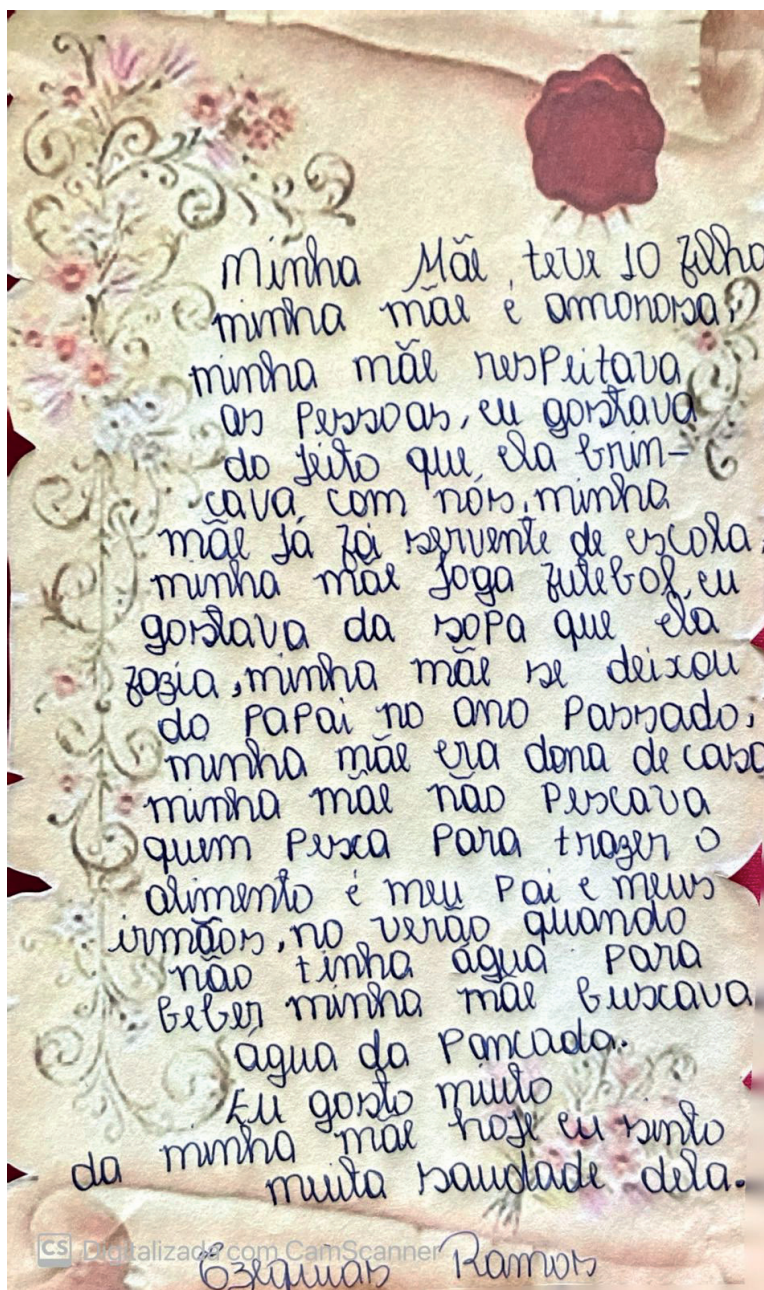 Minha Mãe, teve 10 filho
minha mãe é amorosa,
minha mãe respeitava
as pessoas, eu gostava
do jeito que, ela brin-
cava, com nós, minha
mãe já foi servente de escola,
minha mãe joga futebol, eu
gostava da sopa que ela
fazia, minha mãe se deixou
do papai no ano passado,
minha mãe era dona de casa
minha mãe não pescava
quem pesca para trazer o
alimento é meu pai e meus
irmãos, no verão quando
não tinha água para
beber minha mãe buscava
água da pancada.
Eu gosto muito
da minha mãe hoje eu sinto
muita saudade dela.
CS Digitalizado com CamScanner
Ezequias Ramos